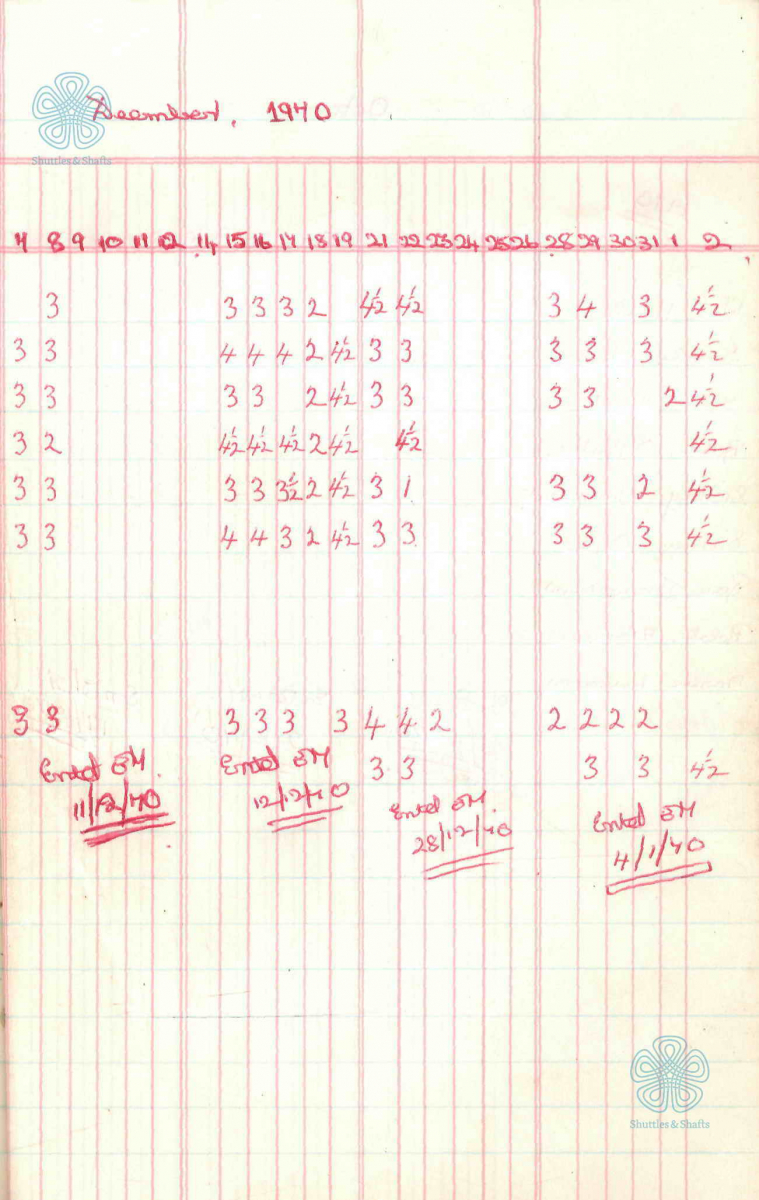 December, 1970
Shuttles & Shafts
7 8 9 10 11 12 14 15 16 17 18 19 21 22 23 24 25 26 28 29 30 31 1 2
3 3 3 3 2 4½ 4½ 3 4 3 4½
3 3 4 4 4 2 4½ 3 3 3 3 3 4½
3 3 3 3 2 4½ 3 3 3 3 2 4½
3 2 4½ 4½ 4½ 2 4½ 4½ 4½
3 3 3 3 3½ 2 4½ 3 1 3 3 2 4½
3 3 4 4 3 2 4½ 3 3 3 3 3 4½
3 3 3 3 3 3 4 4 2 2 2 2 2
3 3 3 3 4½
Entd EM.
11/12/70
Entd EM
12/12/70
Entd EM.
28/12/70
Entd EM
4/1/70
Shuttles & Shafts